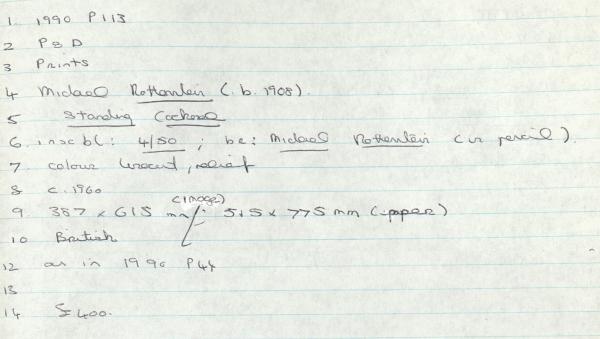 1. 1990 P113
2 P & D
3 Prints
4 Michael Rothenstein (. b. 1908).
5 Standing Cockerel
6. insc bl: 4/50 ; bc: Michael Rothenstein (in pencil).
7. colour linocut, relief
8 c. 1960
9. 387 x 615 mm (image) / 515 x 775 mm (paper)
10 British
12 as in 1990 P44
13
14 £400.